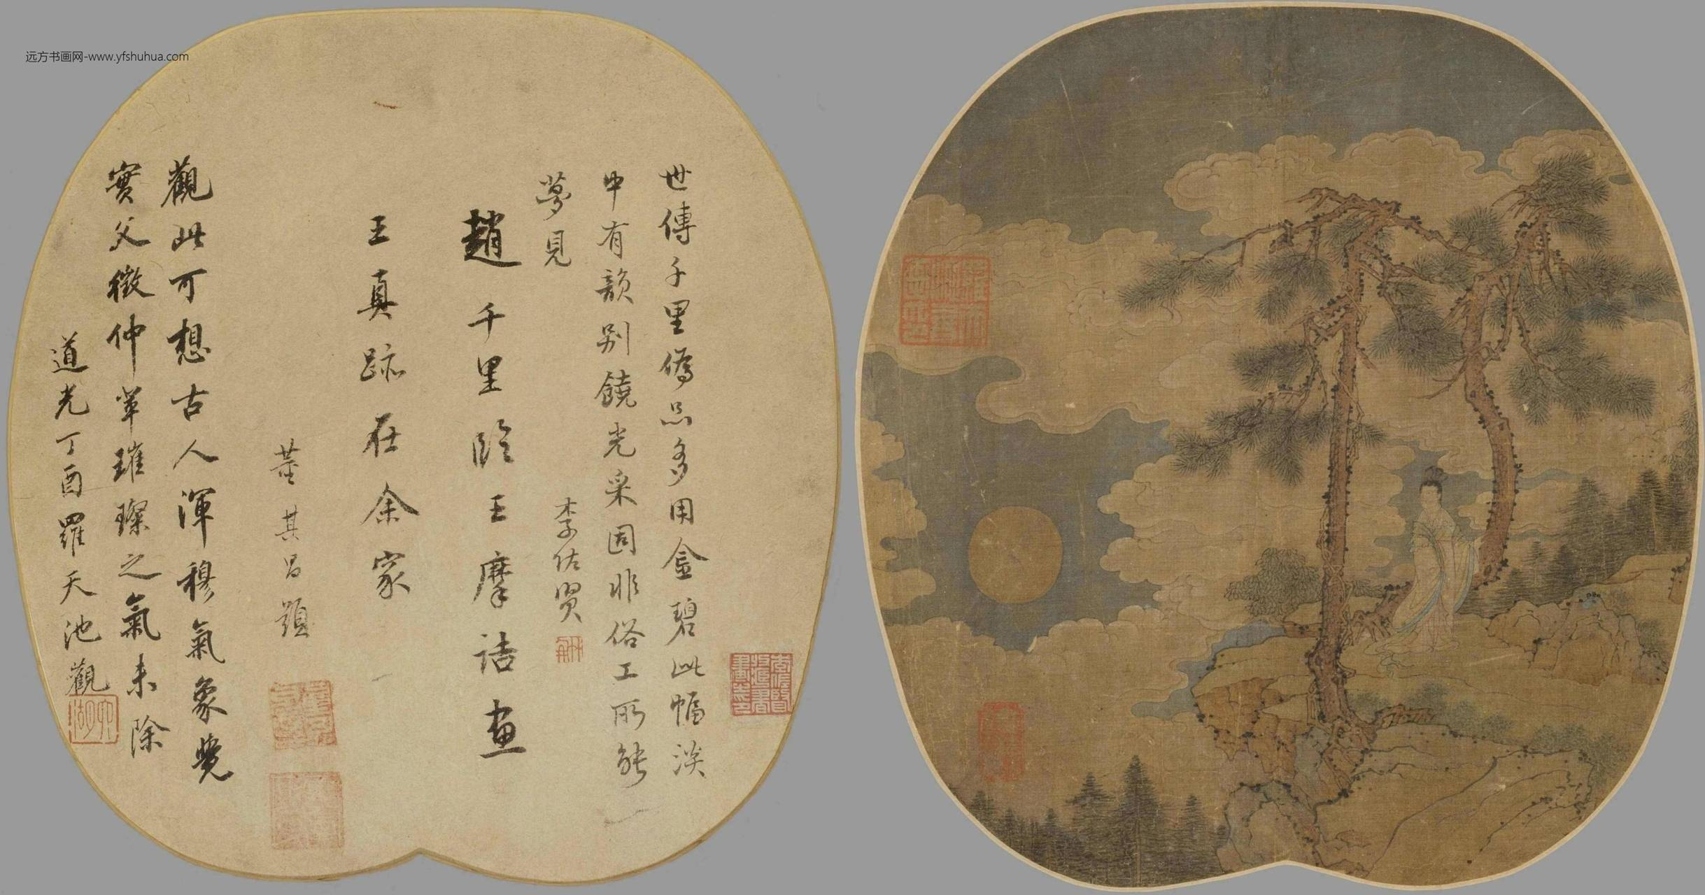 远方书画网-www.yfshuhua.com
世傳千里偽品多用金碧此幅淡
中有韻別饒光采固非俗工所能
夢見
李佐賢
趙千里臨王摩詰畫
王真跡在余家
董其昌題
觀此可想古人渾穆氣象覺
實父徵仲輩璀璨之氣未除
道光丁酉羅天池觀